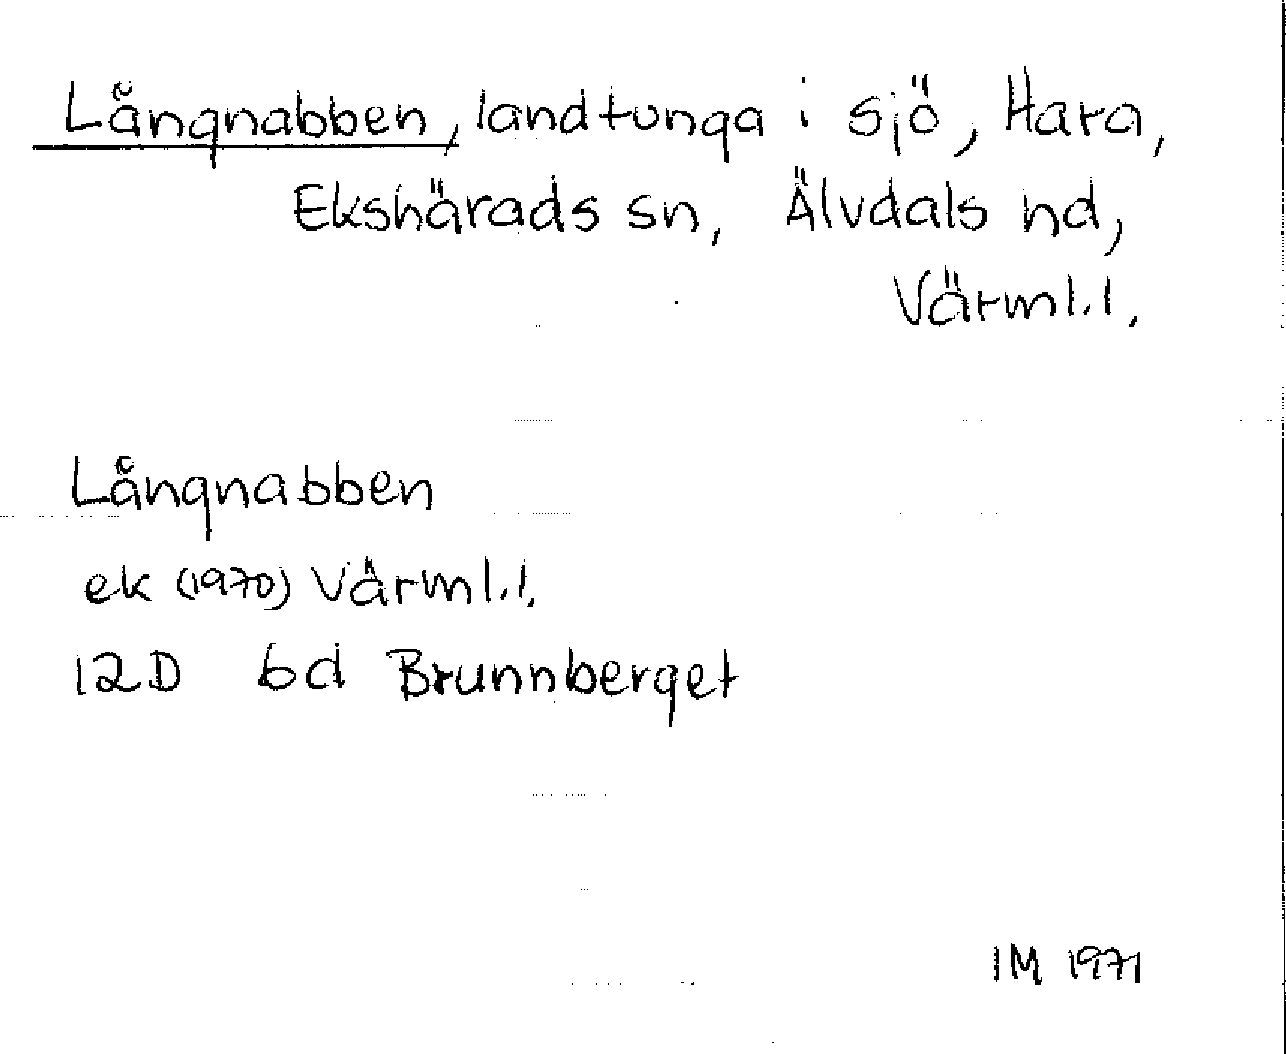 Långnabben, landtunga i sjö, Hara,
Ekshärads sn, Älvdals hd,
Värml.l.
Långnabben
ek (1970) Värml.l.
12D 6d Brunnberget
IM 1971